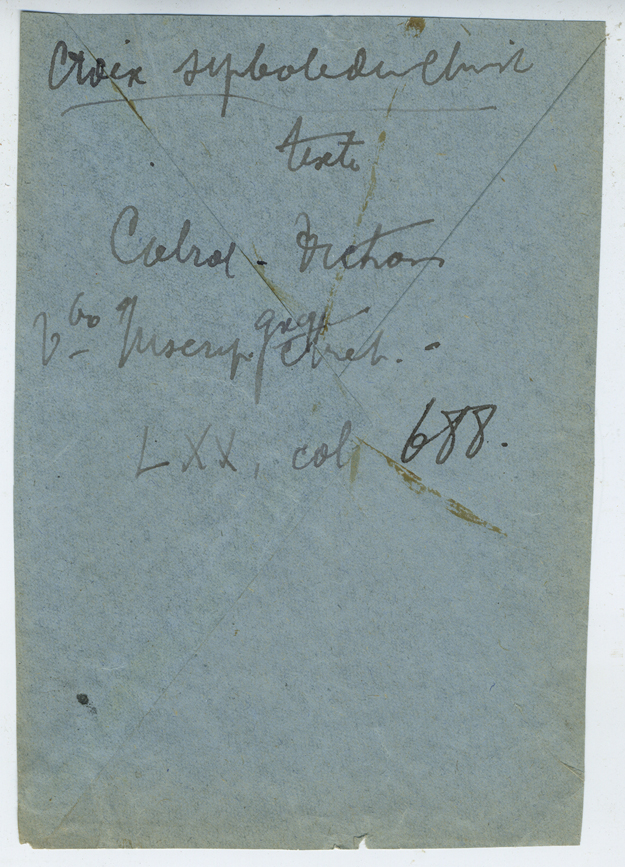 Croix symbole du Christ
texte
Cabrol - Diction
Vbo Inscrip. grecq. chret. -
LXX, col 688.